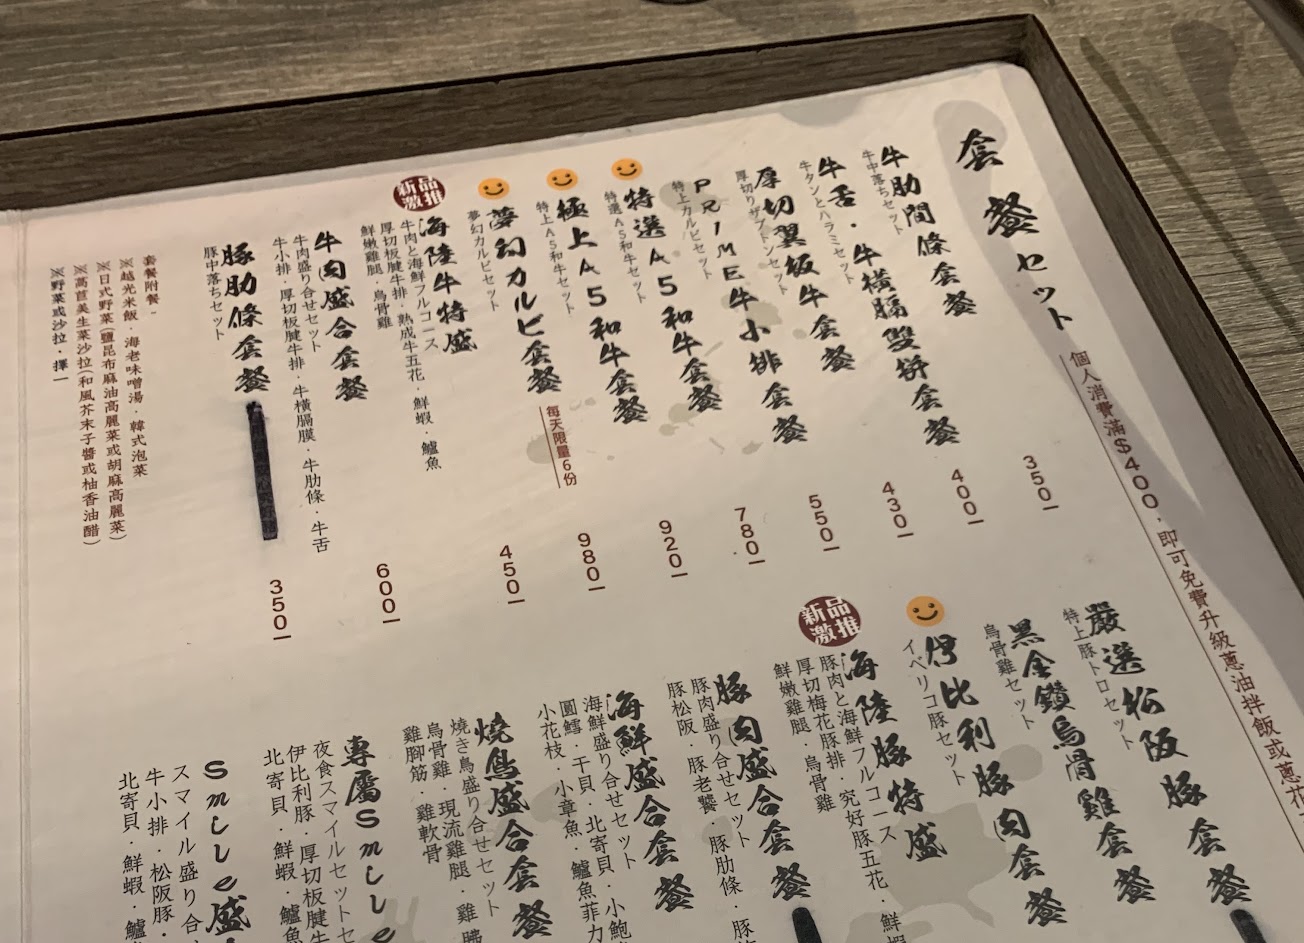 套餐セット
個人消費滿$400，即可免費升級蔥油拌飯或蔥花
牛肋間條套餐 350
牛中落ちセット
牛舌．牛橫膈雙拼套餐 400
牛タンとハラミセット
厚切翼板牛套餐 430
厚切りザブトンセット
PRIME牛小排套餐 550
特上カルビセット
特選A5和牛套餐 780
特選A5和牛セット
極上A5和牛套餐 920
特上A5和牛セット
夢幻カルビ套餐 980
夢幻カルビセット
每天限量6份
新品激推
海陸牛特盛 450
牛肉と海鮮フルコース
厚切板腱牛排．熟成牛五花．鮮蝦．鱸魚
鮮嫩雞腿．烏骨雞
牛肉盛合套餐 600
牛肉盛り合せセット
牛小排．厚切板腱牛排．牛橫膈膜．牛肋條．牛舌
豚肋條套餐 350
豚中落ちセット
套餐附餐-
※越光米飯．海老味噌湯．韓式泡菜
※日式野菜(鹽昆布麻油高麗菜或胡麻高麗菜)
※萵苣美生菜沙拉(和風芥末子醬或柚香油醋)
※野菜或沙拉．擇一
嚴選松阪豚套餐
特上豚トロセット
黑金鑽烏骨雞套餐
烏骨雞セット
伊比利豚肉套餐
イベリコ豚セット
新品激推
海陸豚特盛
豚肉と海鮮フルコース
厚切梅花豚排．究好豚五花．鮮蝦
鮮嫩雞腿．烏骨雞
豚肉盛合套餐
豚肉盛り合せセット
豚松阪．豚老饕．豚肋條．豚
海鮮盛合套餐
海鮮盛り合せセット
圓鱈．干貝．北寄貝．小鮑
小花枝．小章魚．鱸魚菲力
燒鳥盛合套餐
燒き鳥盛り合せセット
烏骨雞．現流雞腿．雞
雞腳筋．雞軟骨
專屬Smile
夜食スマイルセット
伊比利豚．厚切板腱牛
北寄貝．鮮蝦．鱸魚
Smile盛
スマイル盛り合
牛小排．松阪豚．
北寄貝．鮮蝦．鱸